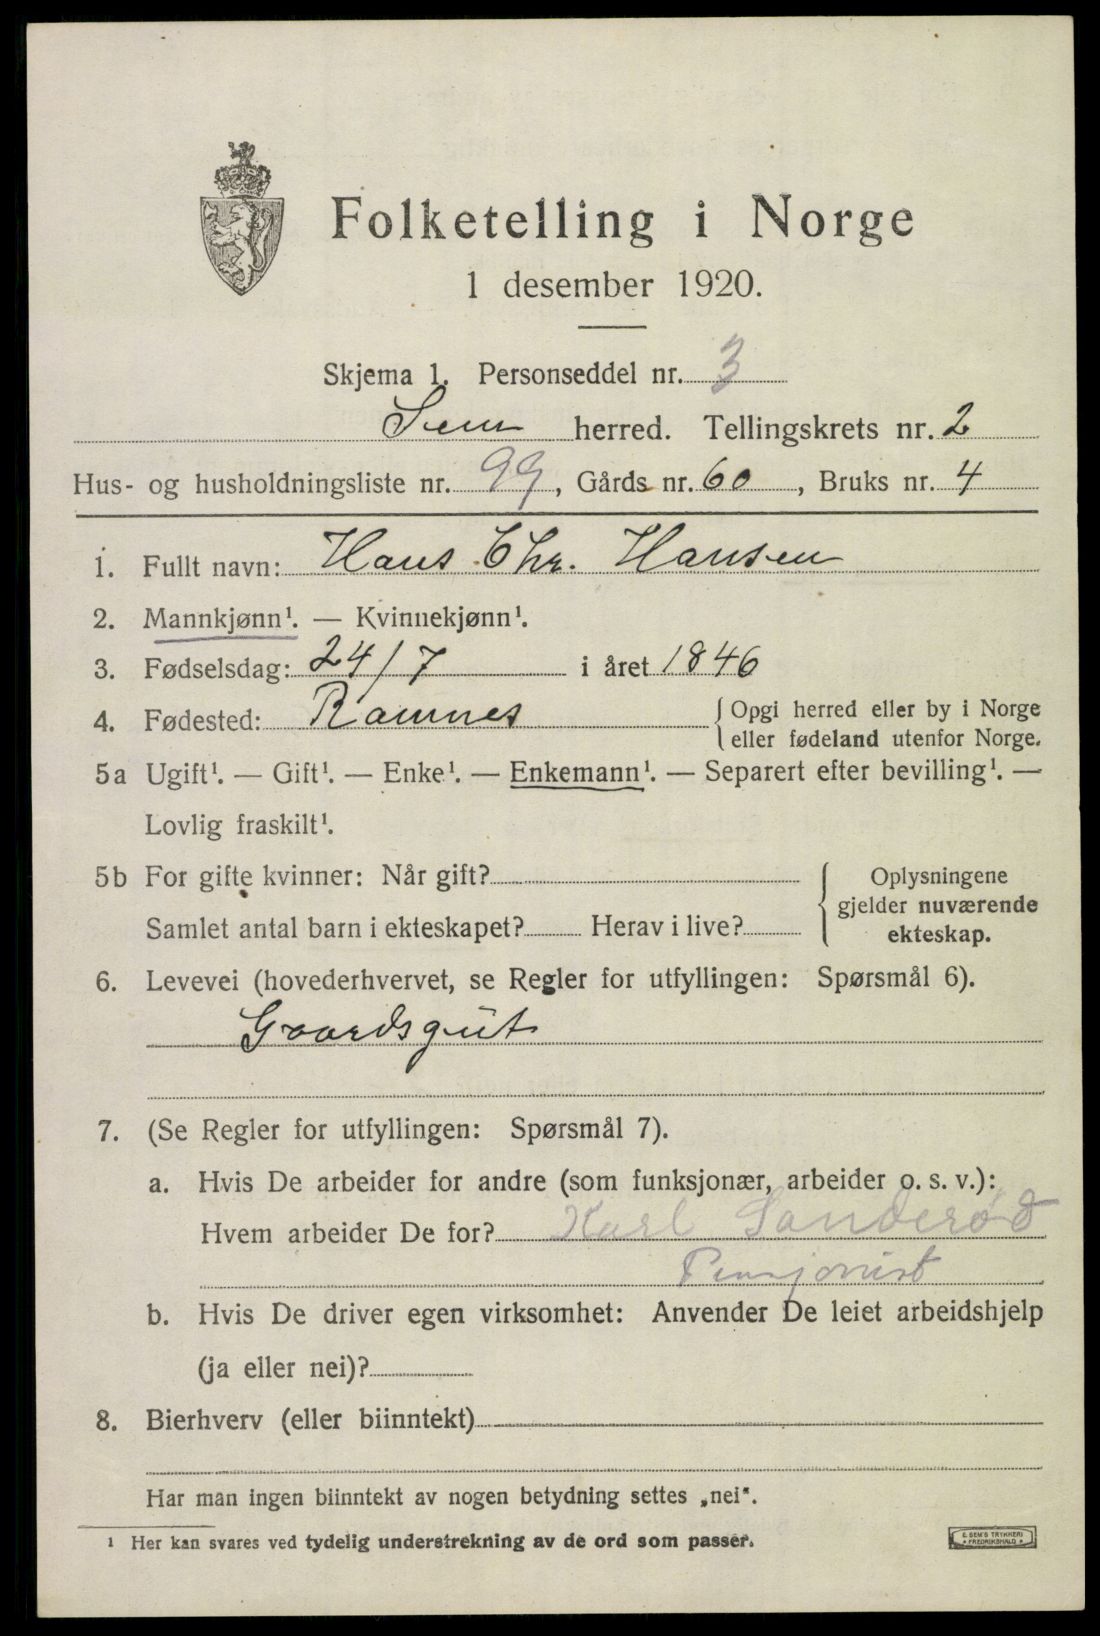 Folketelling i Norge
1 desember 1920.
Skjema 1. Personseddel nr. 3
Sem herred. Tellingskrets nr. 2
Hus- og husholdningsliste nr. 99, Gårds nr. 60, Bruks nr. 4
1. Fullt navn: Hans Chr. Hansen
2. Mannkjønn¹. — Kvinnekjønn¹.
3. Fødselsdag: 24/7 i året 1846
4. Fødested: Ramnes
Opgi herred eller by i Norge
eller fødeland utenfor Norge.
5a Ugift¹. — Gift¹. — Enke¹. — Enkemann¹. — Separert efter bevilling¹. —
Lovlig fraskilt¹.
5b For gifte kvinner: Når gift?
Samlet antal barn i ekteskapet? Herav i live?
Oplysningene
gjelder nuværende
ekteskap.
6. Levevei (hovederhvervet, se Regler for utfyllingen: Spørsmål 6).
Gaardsgut
7. (Se Regler for utfyllingen: Spørsmål 7).
a. Hvis De arbeider for andre (som funksjonær, arbeider o. s. v.):
Hvem arbeider De for? Karl Sanderød
Pensjonist
b. Hvis De driver egen virksomhet: Anvender De leiet arbeidshjelp
(ja eller nei)?
8. Bierhverv (eller biinntekt)
Har man ingen biinntekt av nogen betydning settes „nei“.
¹ Her kan svares ved tydelig understrekning av de ord som passer.
E. SEM'S TRYKKERI
* FREDRIKSHALD *